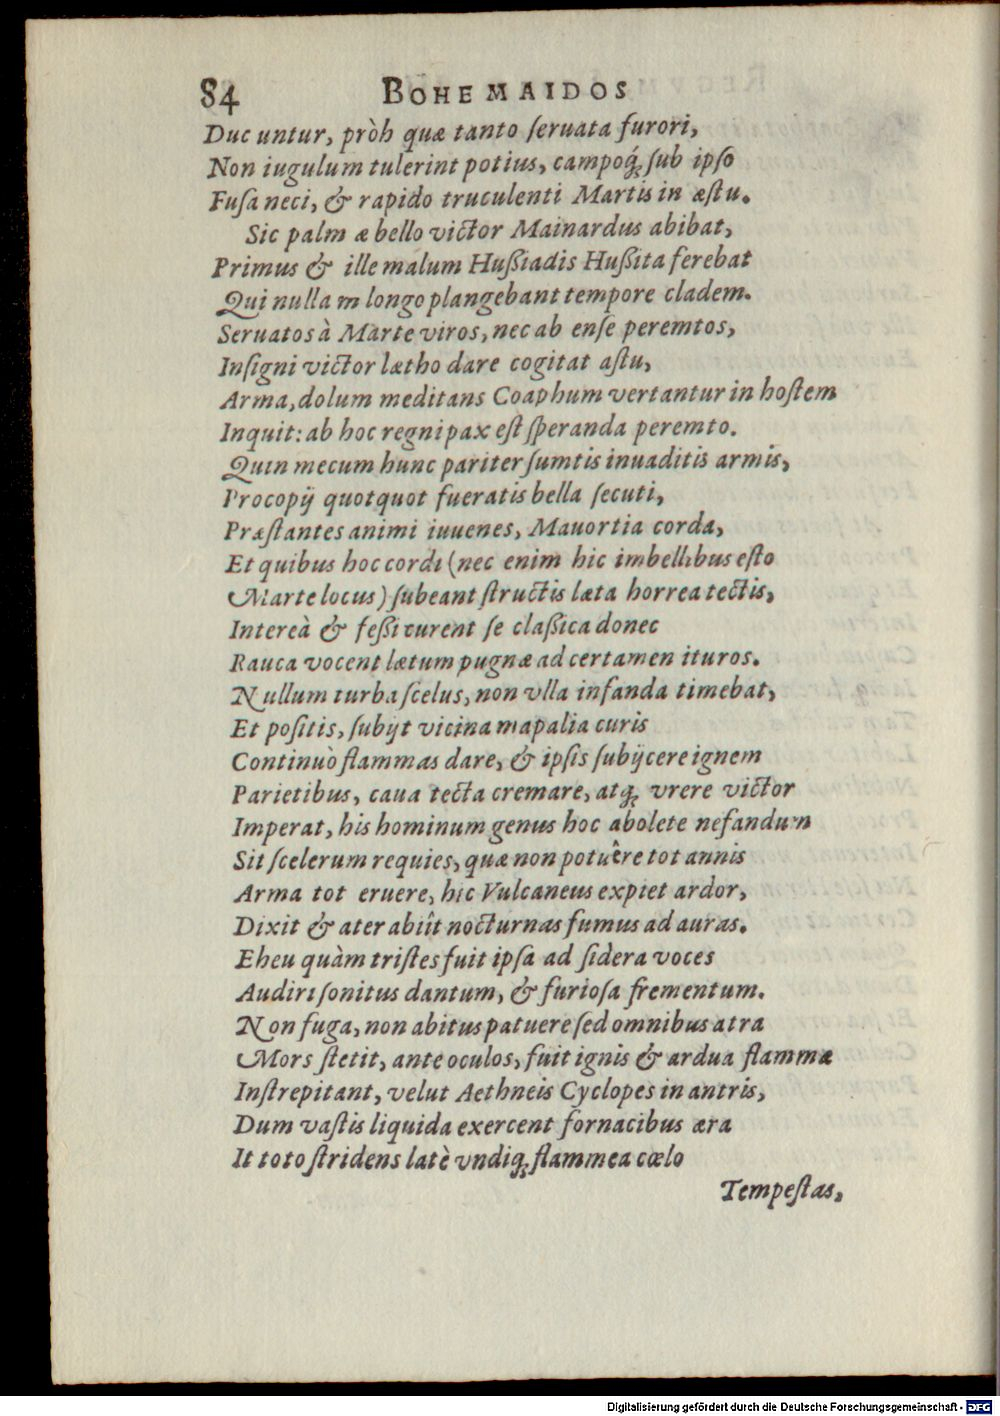 84 BOHEMAIDOS
Ducuntur, pròh quæ tanto ſeruata furori,
Non iugulum tulerint potius, campoq́ꝫ ſub ipſo
Fuſa neci, & rapido truculenti Martis in æſtu.
Sic palmæ bello victor Mainardus abibat,
Primus & ille malum Hußiadis Hußita ferebat
Qui nullam longo plangebant tempore cladem.
Seruatos à Marte viros, nec ab enſe peremtos,
Inſigni victor lætho dare cogitat aſtu,
Arma, dolum meditans Coaphum vertantur in hoſtem
Inquit: ab hoc regni pax eſt ſperanda peremto.
Quin mecum hunc pariter ſumtis inuaditis armis,
Procopij quotquot fueratis bella ſecuti,
Præſtantes animi iuuenes, Mauortia corda,
Et quibus hoc cordi (nec enim hic imbellibus eſto
Marte locus) ſubeant ſtructis læta horrea tectis,
Intereà & feßi curent ſe claßica donec
Rauca vocent lætum pugnæ ad certamen ituros.
Nullum turba ſcelus, non vlla infanda timebat,
Et poſitis, ſubijt vicina mapalia curis
Continuò flammas dare, & ipſis ſubijcere ignem
Parietibus, caua tecta cremare, atqꝫ vrere victor
Imperat, his hominum genus hoc abolete nefandum
Sit ſcelerum requies, quæ non potuêre tot annis
Arma tot eruere, hic Vulcaneus expiet ardor,
Dixit & ater abiît nocturnas fumus ad auras.
Eheu quàm triſtes fuit ipſa ad ſidera voces
Audiri ſonitus dantum, & furioſa frementum.
Non fuga, non abitus patuere ſed omnibus atra
Mors ſtetit, ante oculos, fuit ignis & ardua flammæ
Inſtrepitant, velut Aethneis Cyclopes in antris,
Dum vaſtis liquida exercent fornacibus æra
It toto ſtridens latè vndiqꝫ flammea cœlo
Tempeſtas,
Digitalisierung gefördert durch die Deutsche Forschungsgemeinschaft - DFG